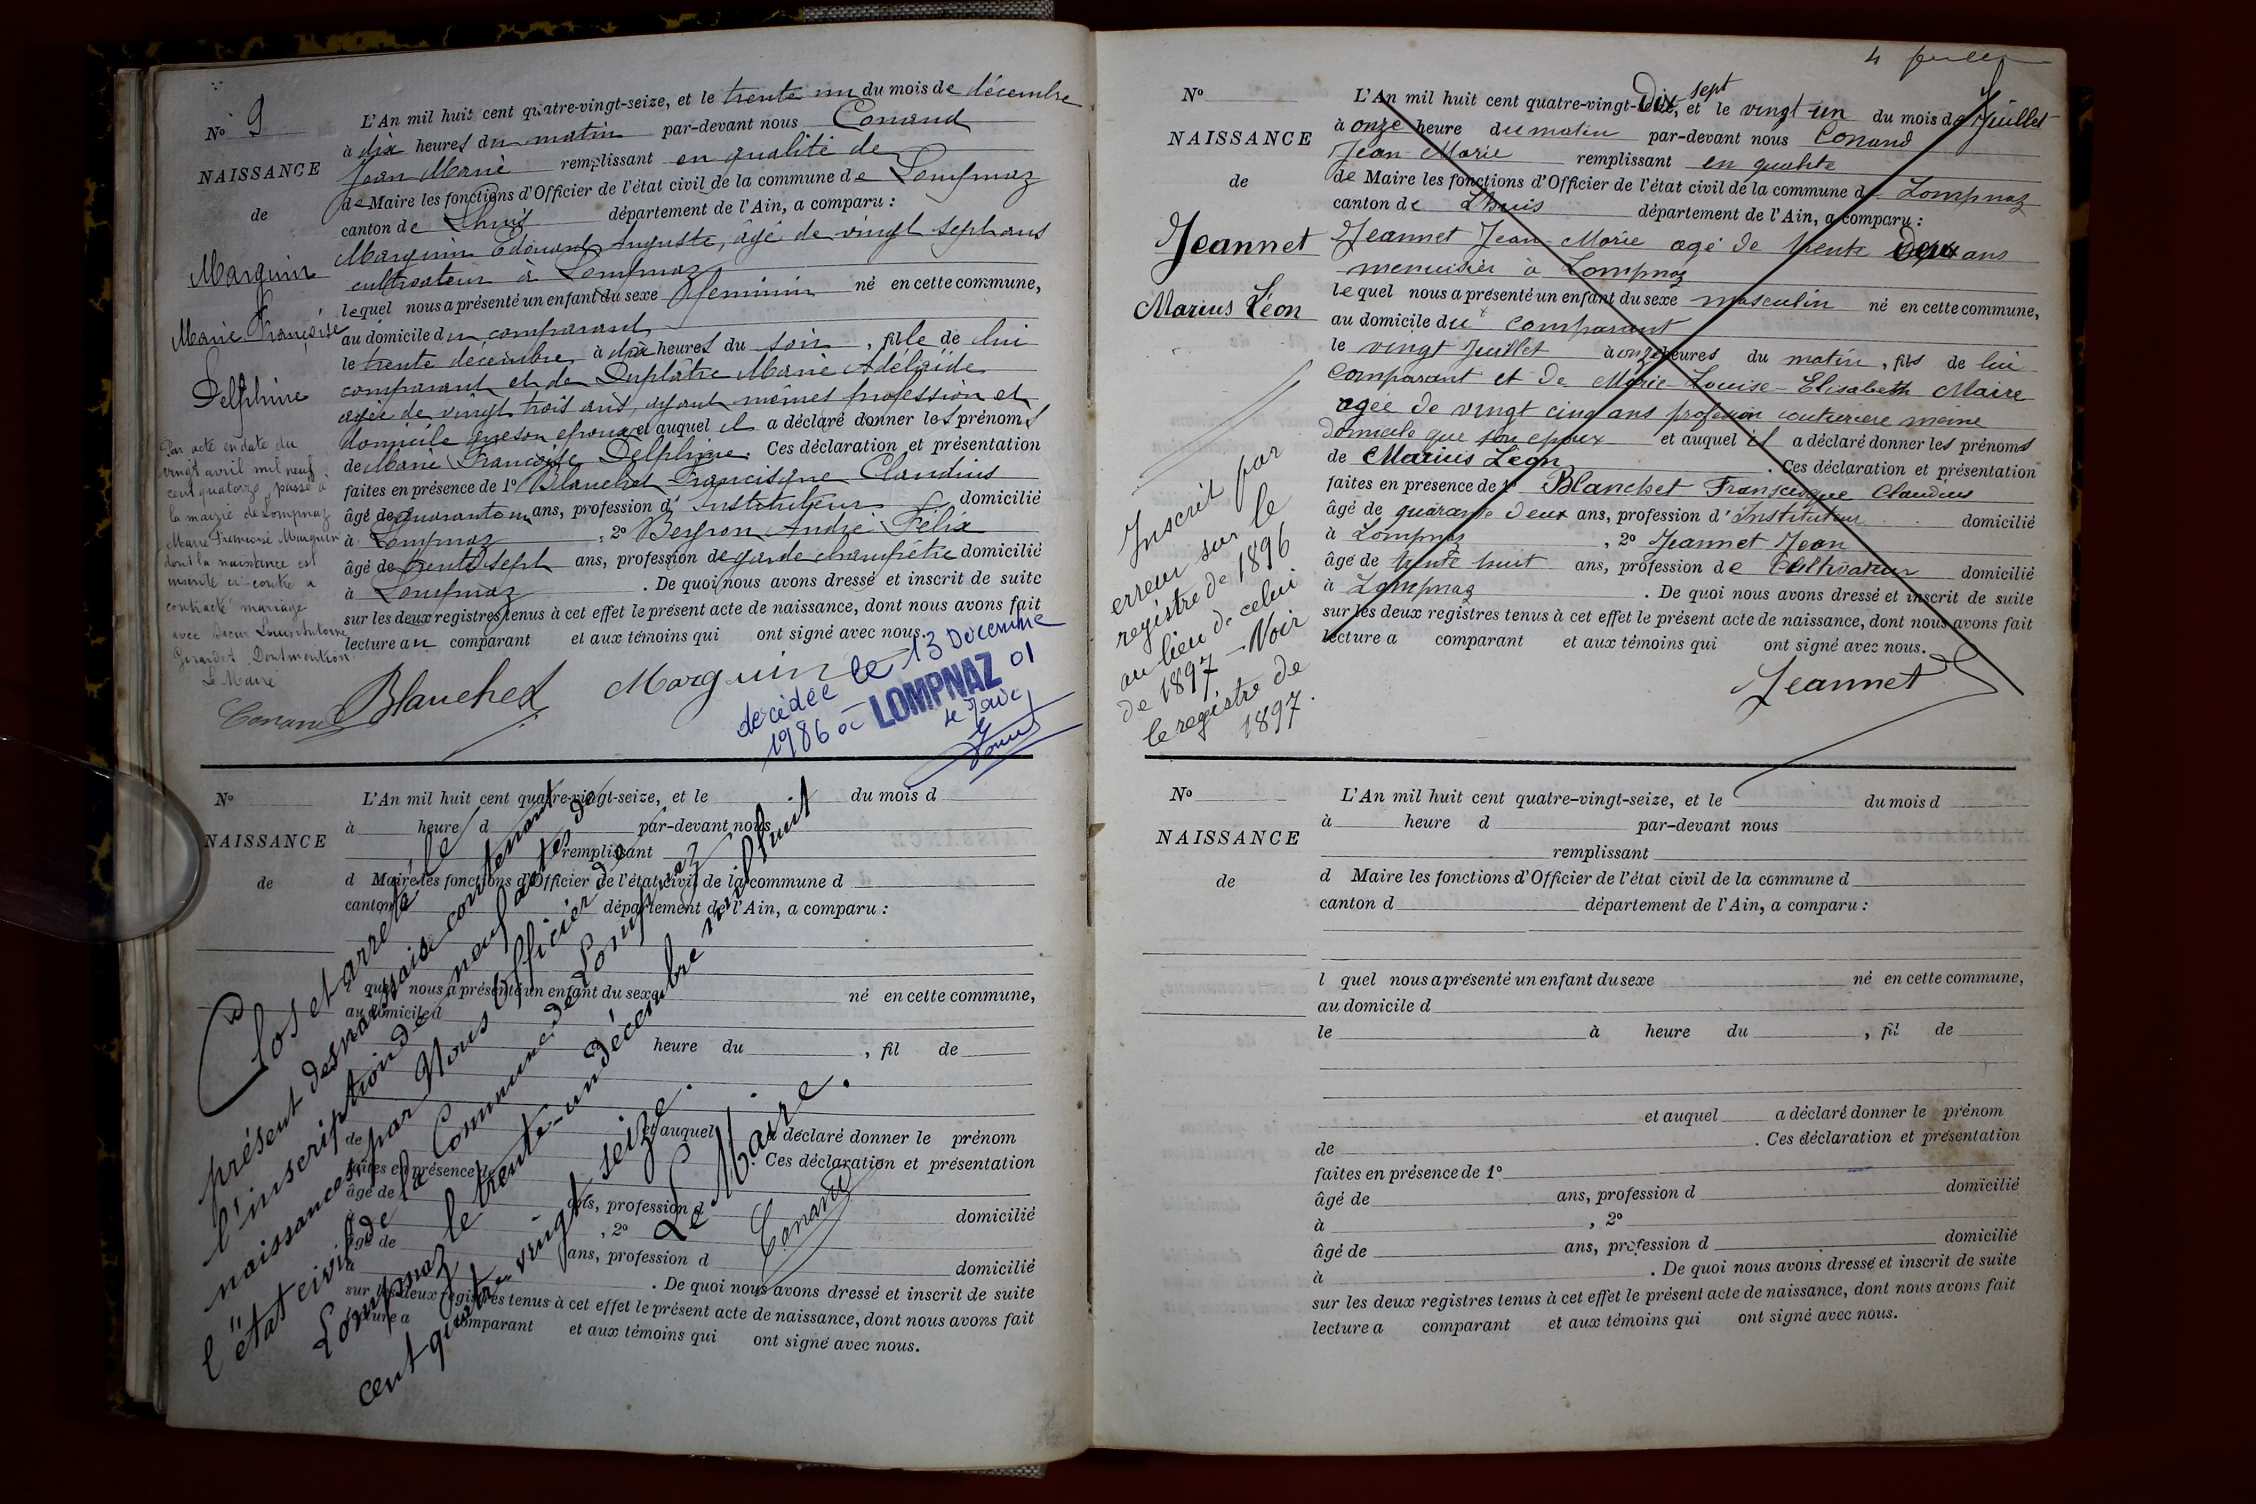 N° 9
NAISSANCE
de
Marguin
Marie Françoise
Delphine
L'An mil huit cent quatre-vingt-seize, et le trente un du mois de décembre
à dix heures du matin par-devant nous Conand
Jean Marie remplissant en qualité de
de Maire les fonctions d'Officier de l'état civil de la commune de Lompnaz
canton de Lhuis département de l'Ain, a comparu :
Marguin Edouard Auguste, âgé de vingt sept ans
cultivateur à Lompnaz
lequel nous a présenté un enfant du sexe féminin né en cette commune,
au domicile du comparant
le trente décembre à dix heures du soir, fille de lui
comparant et de Duplâtre Marie Adélaïde
agée de vingt trois ans, ayant mêmes profession et
domicile que son epoux et auquel il a déclaré donner les prénoms
de Marie Françoise Delphine. Ces déclaration et présentation
faites en présence de 1° Blanchet Francisque Claudius
âgé de quarante un ans, profession d'Instituteur domicilié
à Lompnaz, 2° Beyron André Félix
âgé de trente sept ans, profession de garde champêtre domicilié
à Lompnaz. De quoi nous avons dressé et inscrit de suite
sur les deux registres tenus à cet effet le présent acte de naissance, dont nous avons fait
lecture au comparant et aux témoins qui ont signé avec nous.
Par acte en date du
vingt avril mil neuf
cent quatorze passé à
la mairie de Lompnaz
Marie Françoise Marguin
dont la naissance est
inscrite ci-contre a
contracté mariage
avec Louis Antoine
Girardet Dont mention
Le Maire
Conand
Blanchet
Marguin
decédée le 13 Decembre
1986 à LOMPNAZ 01
N°
NAISSANCE
de
L'An mil huit cent quatre-vingt-seize, et le du mois d
à heure d par-devant nous
remplissant
d Maire les fonctions d'Officier de l'état civil de la commune d
canton d département de l'Ain, a comparu :
l quel nous a présenté un enfant du sexe né en cette commune,
au domicile d
le à heure du , fil de
et auquel a déclaré donner le prénom
de . Ces déclaration et présentation
faites en présence de 1°
âgé de ans, profession d domicilié
à , 2°
âgé de ans, profession d domicilié
à . De quoi nous avons dressé et inscrit de suite
sur les deux registres tenus à cet effet le présent acte de naissance, dont nous avons fait
lecture a comparant et aux témoins qui ont signé avec nous.
Clos et arrêté le
présent des naissances contenant
l'inscription de neuf actes de
naissances par Nous Officier de
l'état civil de la Commune de Lompnaz
Lompnaz le trente-un décembre mil huit
cent quatre-vingt seize.
Le Maire.
Conand
4 juillet
N°
NAISSANCE
de
Jeannet
Marius Léon
L'An mil huit cent quatre-vingt-Dix sept, et le vingt un du mois de Juillet
à onze heure du matin par-devant nous Conand
Jean Marie remplissant en qualité
de Maire les fonctions d'Officier de l'état civil de la commune d Lompnaz
canton de Lhuis département de l'Ain, a comparu :
Jeannet Jean Marie agé de trente deux ans
menuisier à Lompnaz
lequel nous a présenté un enfant du sexe masculin né en cette commune,
au domicile du comparant
le vingt Juillet à onze heures du matin, fils de lui
comparant et de Marie-Louise-Elisabeth Maire
agée de vingt cinq ans profession couturiere meme
domicile que son epoux et auquel il a déclaré donner les prénoms
de Marius Léon. Ces déclaration et présentation
faites en présence de 1° Blanchet Franscisque Claudius
âgé de quarante deux ans, profession d'Instituteur domicilié
à Lompnaz, 2° Jeannet Jean
âgé de trente huit ans, profession de Cultivateur domicilié
à Lompnaz. De quoi nous avons dressé et inscrit de suite
sur les deux registres tenus à cet effet le présent acte de naissance, dont nous avons fait
lecture a comparant et aux témoins qui ont signé avec nous.
Jeannet
Inscrit par
erreur sur le
registre de 1896
au lieu de celui
de 1897 - Voir
le registre de
1897.
N°
NAISSANCE
de
L'An mil huit cent quatre-vingt-seize, et le du mois d
à heure d par-devant nous
remplissant
d Maire les fonctions d'Officier de l'état civil de la commune d
canton d département de l'Ain, a comparu :
l quel nous a présenté un enfant du sexe né en cette commune,
au domicile d
le à heure du , fil de
et auquel a déclaré donner le prénom
de . Ces déclaration et présentation
faites en présence de 1°
âgé de ans, profession d domicilié
à , 2°
âgé de ans, profession d domicilié
à . De quoi nous avons dressé et inscrit de suite
sur les deux registres tenus à cet effet le présent acte de naissance, dont nous avons fait
lecture a comparant et aux témoins qui ont signé avec nous.